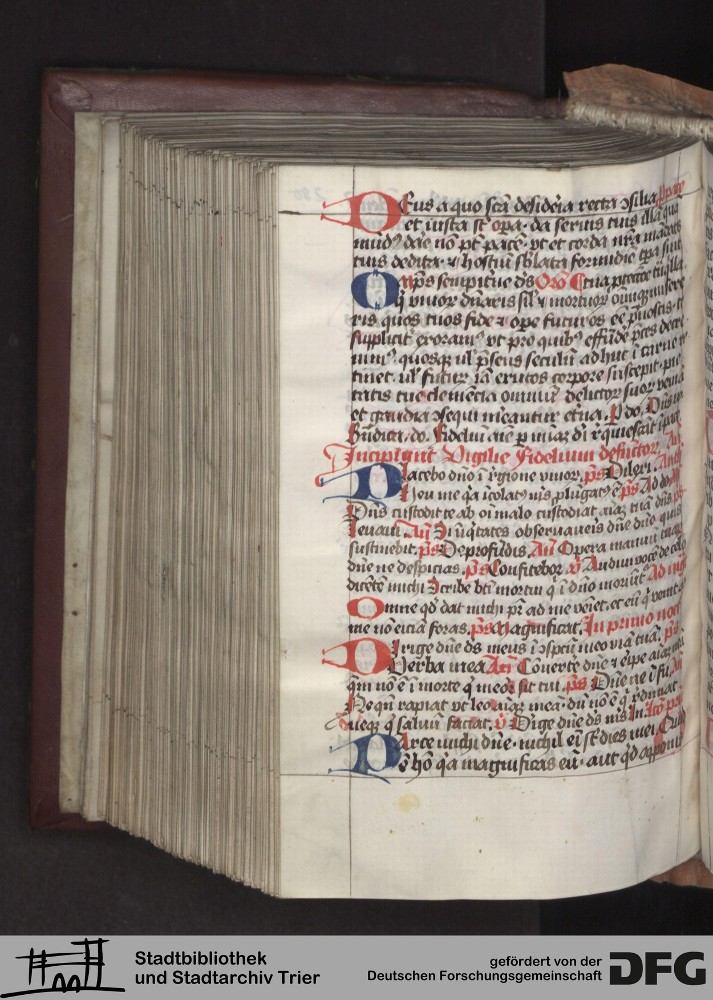 Deus a quo scā desideria recta ↄsilia
et iusta st opa da seruis tuis illā quā
mūdꝰ dare nō pt pacē vt et corda nr̄a mādatis
tuis dedita ⁊ hostiū sblata formidīe
Omps sempitne ds Orō
q̄ viuoꝝ dn̄aris sil ⁊ mortuoꝝ oniūqꝫ misere
ris quos tuos fide ⁊ ope futuros eē p̄noscis
supplicit exoramꝰ vt pro quibꝰ effūdē p̄ces decre
uimꝰ quosqꝫ ul p̄sens seculū adhuc ī carne re
tinet ul futur iā exutos corpore suscepit pie
tatis tue clemēcia omniū delictoꝝ suoꝝ veniā
et gaudia ↄsequi meantur etna P do
Bn̄dica do fidelium aīe p miaꝫ di rquiescāt ī pace
Incipiunt Vigilie fidelium defūctoꝝ
Placebo dno ī rgione viuoꝝ ps Dilexi
Heu me qa īcolatꝰ mꝰ plugatꝰ ē ps Ad dn̄
Dns custodit te ab oī malo custodiat aīaꝫ tuā dns ps
Leuaui An̄ Si īiq̄tates obseruaueris dn̄e dn̄e quis
sustinebit ps De profūdis An̄ Opera manuū tuaꝝ
dn̄e ne despicias ps Confitebor v Audiui vocē de celo
dicētē michi Scribe bti mortui q̄ ī dn̄o moriūt
Omne qd dat michi pr̄ ad me veiet et eū q̄ venit
me nō eiciā foras ps Magnificat In primo noct
Dirige dn̄e ds meus ī ↄspcū tuo viā meā
Verba mea An̄ Conuerte dn̄e ⁊ eripe aīaꝫ meā
qm̄ nō ē ī morte q̄ meoꝝ sit tui ps Dn̄e ne ī fu
Ne qn̄ rapiat vt leo aīaꝫ meā dū nō ē q̄ redimat
neqꝫ q̄ saluū faciat v Dirige dn̄e ds ms
Parce michi dn̄e nichil eī st dies mei Quid
ē hō qa magnificas eū aut qd apponis
Stadtbibliothek
und Stadtarchiv Trier
gefördert von der
Deutschen Forschungsgemeinschaft
DFG